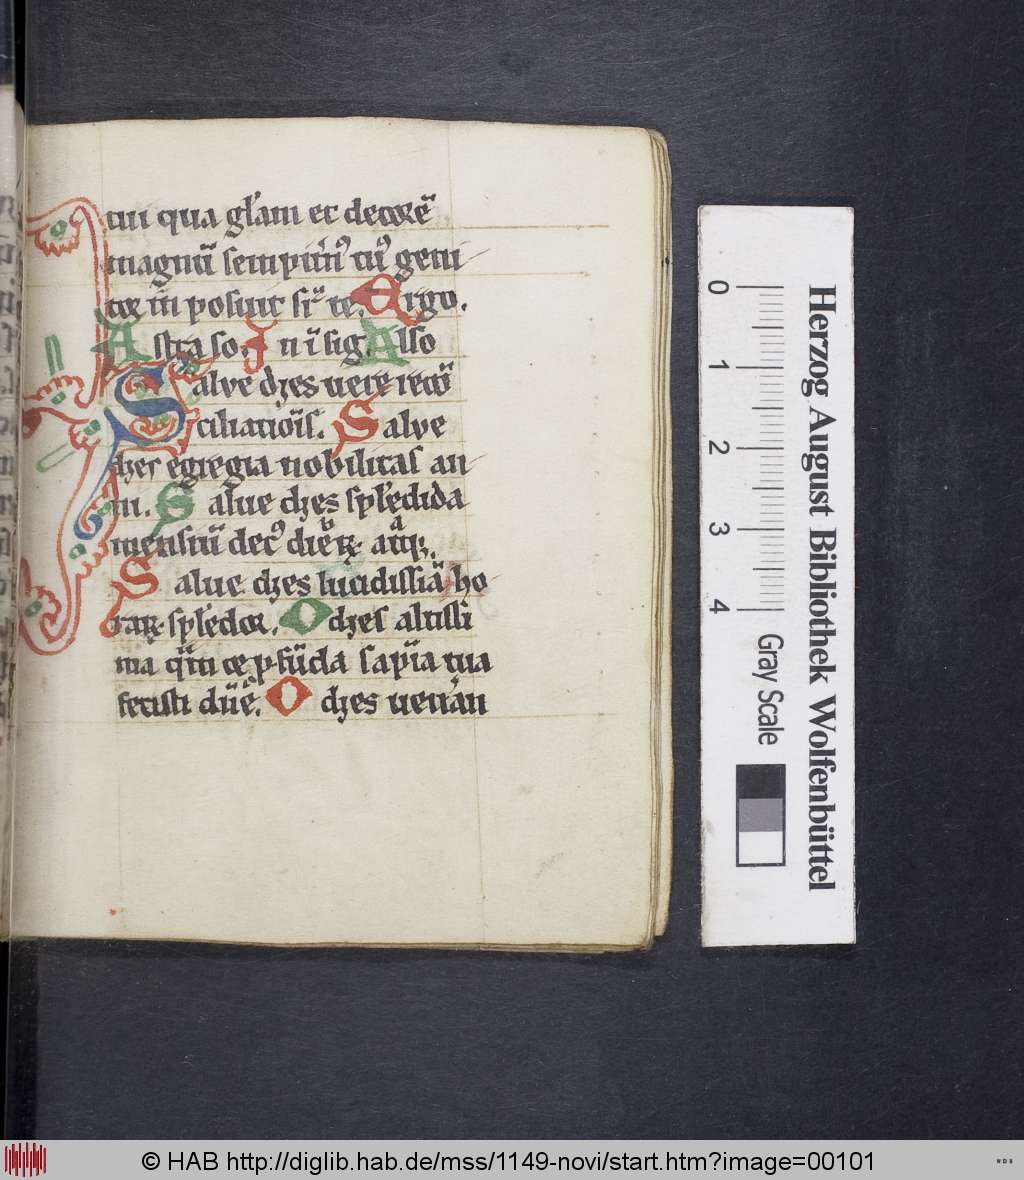 tui qua gl'am et decorē
magnū sempit'n9 tu9 geni
tor in posuit sr te. Ergo.
Asta so. In i sig Also
Salve dzes vere reco
ciliatiois. Salve
dzes egregia nobilitas an
ni. Salue dzes sple'dida
mensiū dec9 dierꝝ atq3.
Salue dzes lucidissiā ho
rarꝝ sple'dor. O dzes altissi
ma qm ce ꝓfūda sapia tua
fecisti diue. O dzes ueran
Herzog August Bibliothek Wolfenbüttel
0 1 2 3 4
Gray Scale
© HAB http://diglib.hab.de/mss/1149-novi/start.htm?image=00101